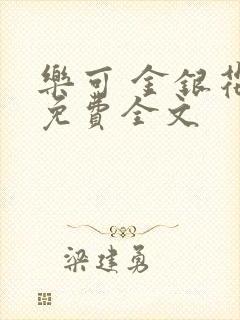 樂可 金銀花
免費全文
梁建勇